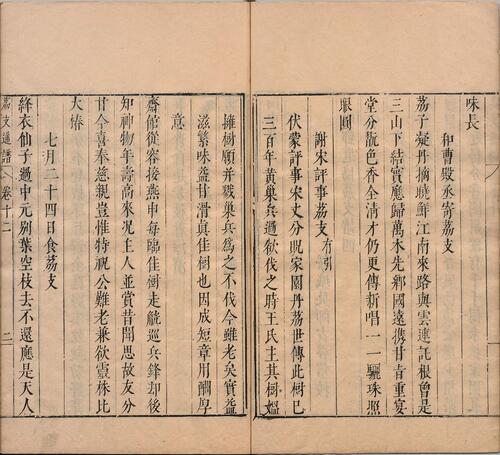 味長
和曹殿丞寄荔支
荔子凝丹摘曉鮮江南來路與雲連託根曾是
三山下結實應歸萬木先鄉國遠携甘旨重宴
堂分翫色香全清才仍更傳新唱一一驪珠照
眼圓
謝宋評事荔支有引
伏蒙評事宋丈分貺家園丹荔世傳此樹已
三百年黃巢兵過欲伐之時王氏主其樹媼
擁樹願并戮巢兵為之不伐今雖老矣實益
滋繁味益甘滑真佳樹也因成短章用酬厚
意
齋館從容接燕申每臨佳樹走觥巡兵鋒却後
知神物年壽高來况主人並賞昔聞思故友分
甘今喜奉慈親豈惟特祝公難老兼欲靈株比
大椿
七月二十四日食荔支
絳衣仙子過中元別葉空枝去不還應是天人
荔支通譜
卷十二
二